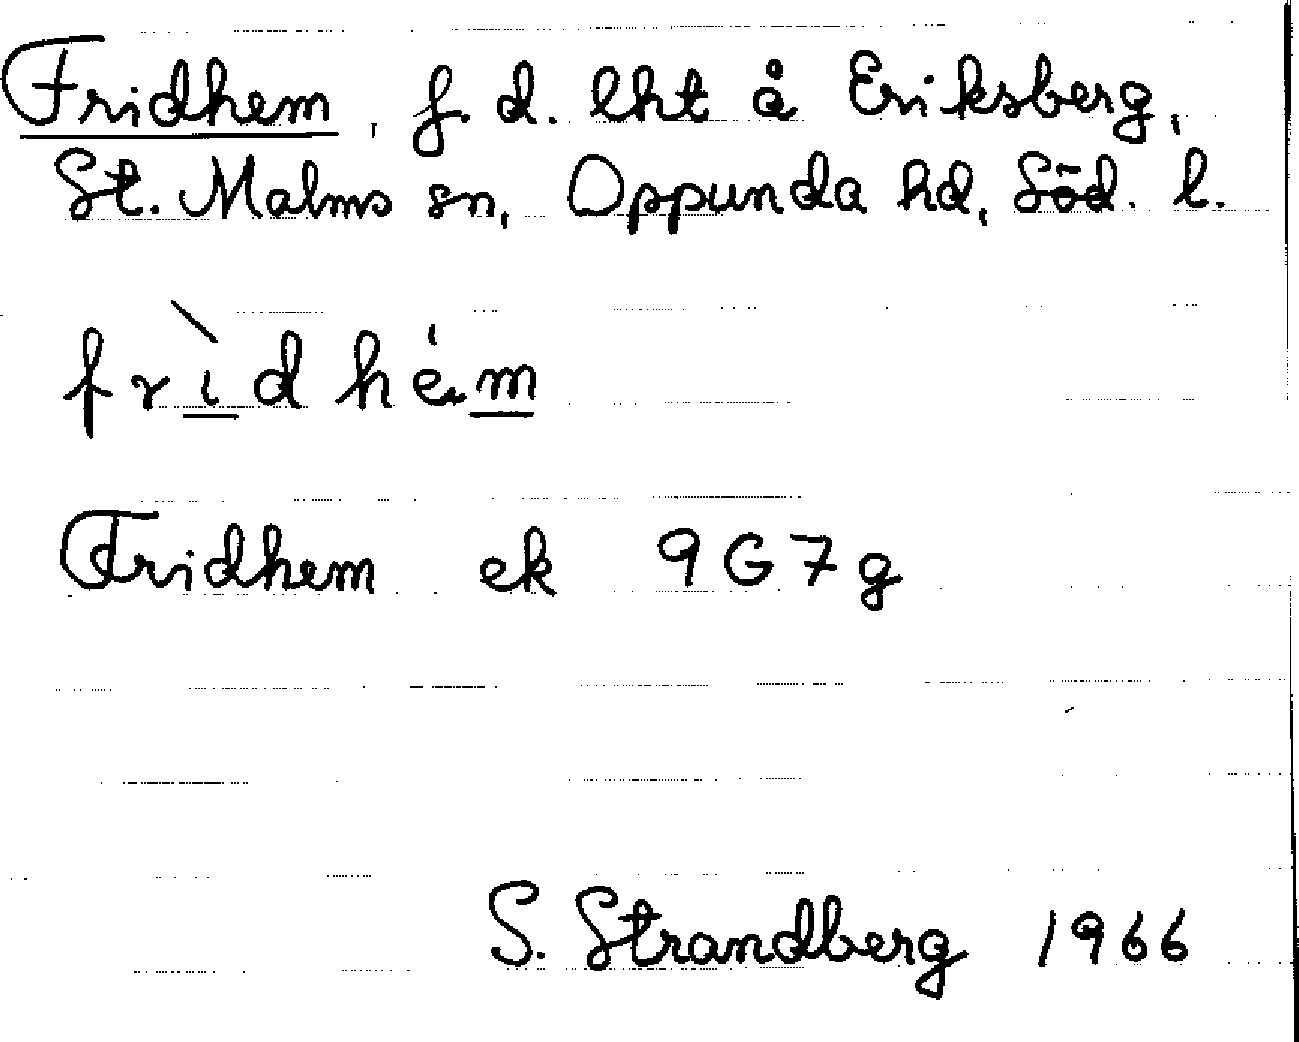 Fridhem, f. d. lht å Eriksberg,
St. Malms sn, Oppunda hd, Söd. l.
frìdhém
Fridhem ek 9G7g
S. Strandberg 1966